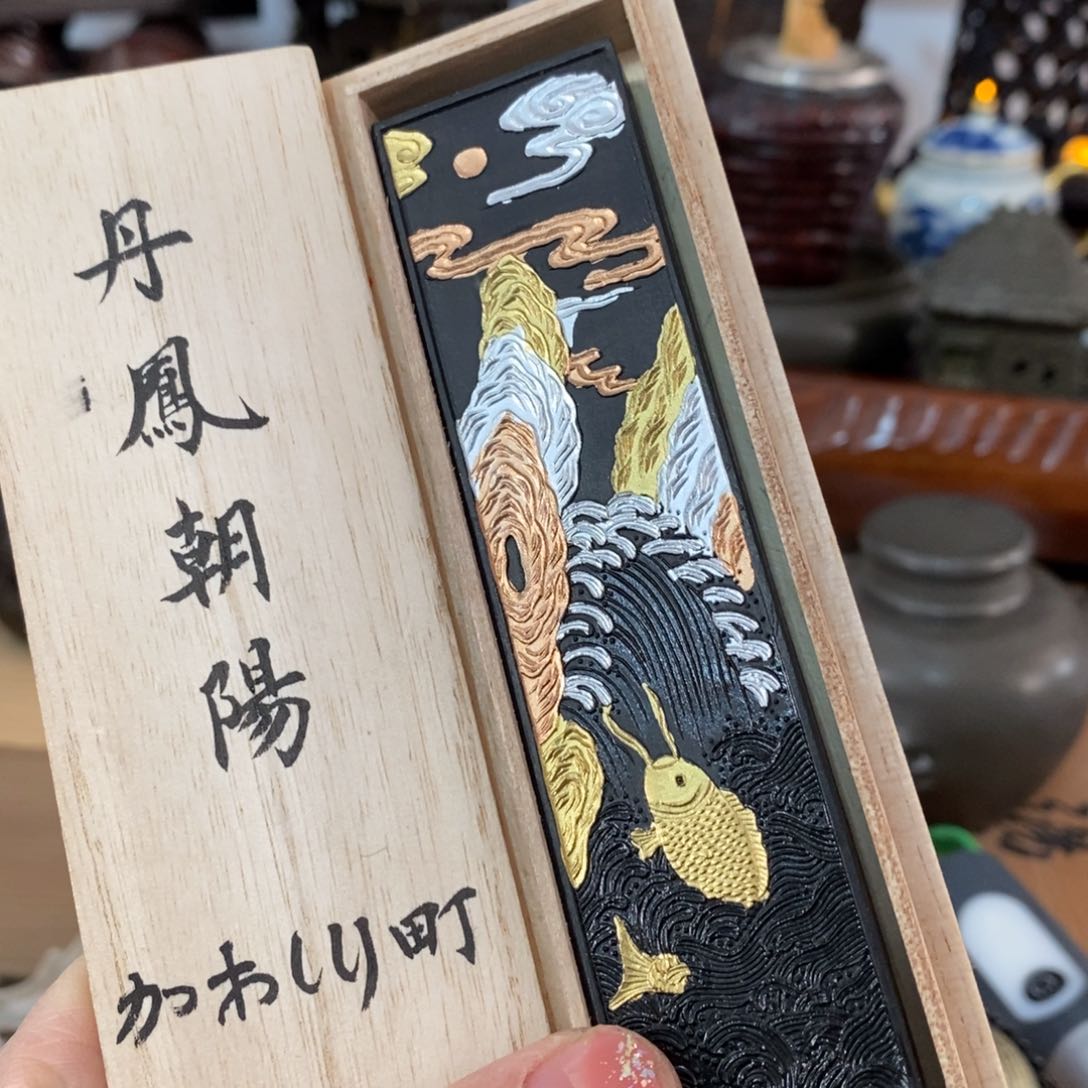 丹鳳朝陽
かわしり町